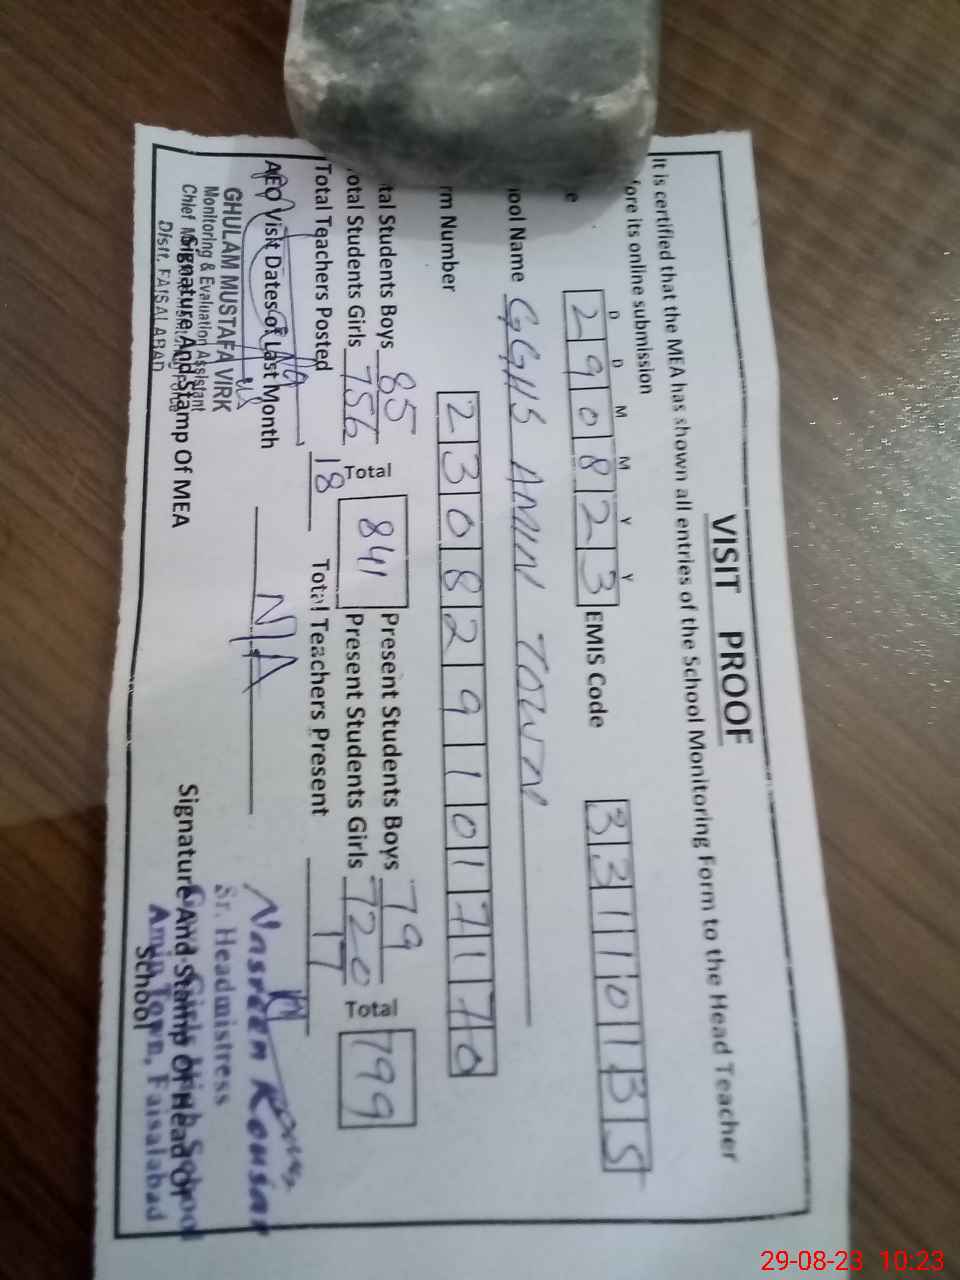 VISIT PROOF
It is certified that the MEA has shown all entries of the School Monitoring Form to the Head Teacher
fore its online submission
D D M M Y Y
e 290823 EMIS Code 33110135
ool Name GGHS AMIN TOWN
rm Number 2308291017170
tal Students Boys 85 Total 841 Present Students Boys 79 Total 799
otal Students Girls 756 Present Students Girls 720
Total Teachers Posted 18 Total Teachers Present 17
AEO Visit Dates of Last Month N/A
GHULAM MUSTAFA VIRK
Monitoring & Evaluation Assistant
Chief
Distt. FAISALABAD
Signature And Stamp Of MEA
Nasreen Kousar
Sr. Headmistress
Girls High School
Amin Town, Faisalabad
Signature And Stamp Of Head Of
School
29-08-23 10:23